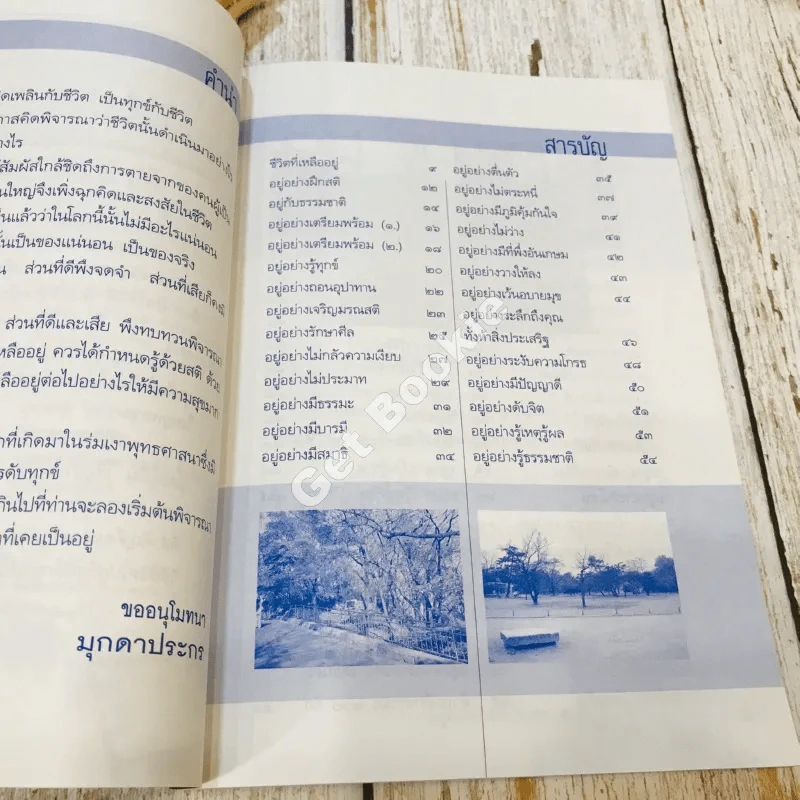 คำนำ
ดเพลินกับชีวิต เป็นทุกข์กับชีวิต
าสคิดพิจารณาว่าชีวิตนั้นดำเนินมาอย่างไร
างไร
สัมผัสใกล้ชิดถึงการตายจากของคนผู้เป็น
นใหญ่จึงเพิ่งฉุกคิดและสงสัยในชีวิต
ในแล้วว่าในโลกนี้นั้นไม่มีอะไรแน่นอน
ั้นเป็นของแน่นอน เป็นของจริง
น ส่วนที่ดีพึงจดจำ ส่วนที่เสียก็
ส่วนที่ดีและเสีย พึงทบทวนพิจารณา
หลืออยู่ ควรได้กำหนดรู้ด้วยสติ ด้วย
ลืออยู่ต่อไปอย่างไรให้มีความสุขมาก
าที่เกิดมาในร่มเงาพุทธศาสนาซึ่งมี
ารดับทุกข์
กินไปที่ท่านจะลองเริ่มต้นพิจารณา
าที่เคยเป็นอยู่
ขออนุโมทนา
มุกดาประกร
สารบัญ
ชีวิตที่เหลืออยู่ ๙
อยู่อย่างฝึกสติ ๑๒
อยู่กับธรรมชาติ ๑๔
อยู่อย่างเตรียมพร้อม (๑.) ๑๖
อยู่อย่างเตรียมพร้อม (๒.) ๑๘
อยู่อย่างรู้ทุกข์ ๒๐
อยู่อย่างถอนอุปาทาน ๒๒
อยู่อย่างเจริญมรณสติ ๒๓
อยู่อย่างรักษาศีล ๒๕
อยู่อย่างไม่กลัวความเงียบ ๒๗
อยู่อย่างไม่ประมาท ๒๙
อยู่อย่างมีธรรมะ ๓๑
อยู่อย่างมีบารมี ๓๒
อยู่อย่างมีสมาธิ ๓๔
อยู่อย่างตื่นตัว ๓๕
อยู่อย่างไม่ตระหนี่ ๓๗
อยู่อย่างมีภูมิคุ้มกันใจ ๓๙
อยู่อย่างไม่ว่าง ๔๑
อยู่อย่างมีที่พึ่งอันเกษม ๔๒
อยู่อย่างวางให้ลง ๔๓
อยู่อย่างเว้นอบายมุข ๔๔
อยู่อย่างระลึกถึงคุณ
ทั้งห้าสิ่งประเสริฐ ๔๖
อยู่อย่างระงับความโกรธ ๔๘
อยู่อย่างมีปัญญาดี ๕๐
อยู่อย่างดับจิต ๕๑
อยู่อย่างรู้เหตุรู้ผล ๕๓
อยู่อย่างรู้ธรรมชาติ ๕๔
Get Bookie